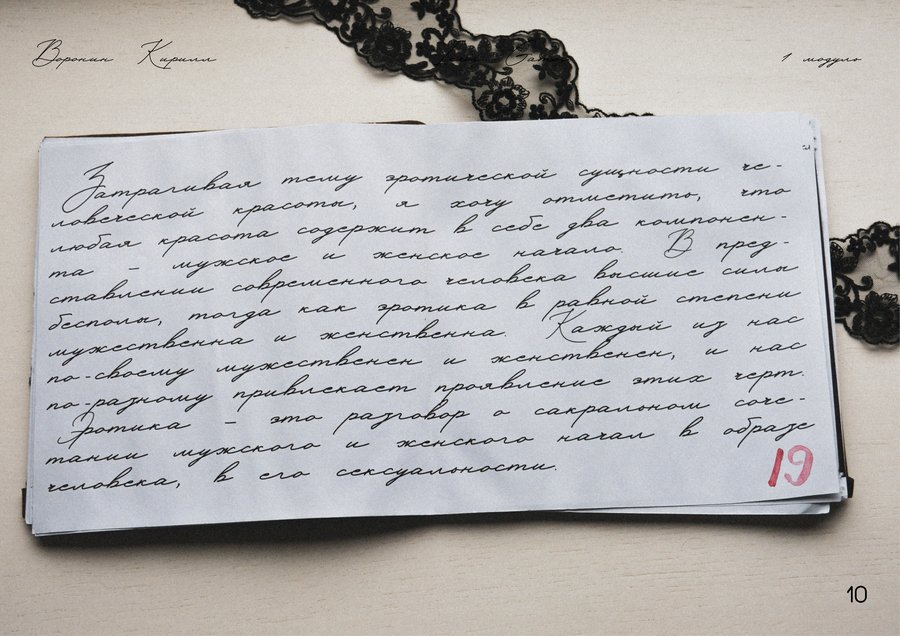 Воронин Кирилл
1 модуль
Затрагивая тему эротической сущности че-
ловеческой красоты, я хочу отметить, что
любая красота содержит в себе два компонен-
та - мужское и женское начало. В пред-
ставлении современного человека высшие силы
бесполы, тогда как эротика в равной степени
мужественна и женственна. Каждый из нас
по-своему мужественен и женственен, и нас
по-разному привлекает проявление этих черт.
Эротика - это разговор о сакральном соче-
тании мужского и женского начал в образе
человека, в его сексуальности.
19
10